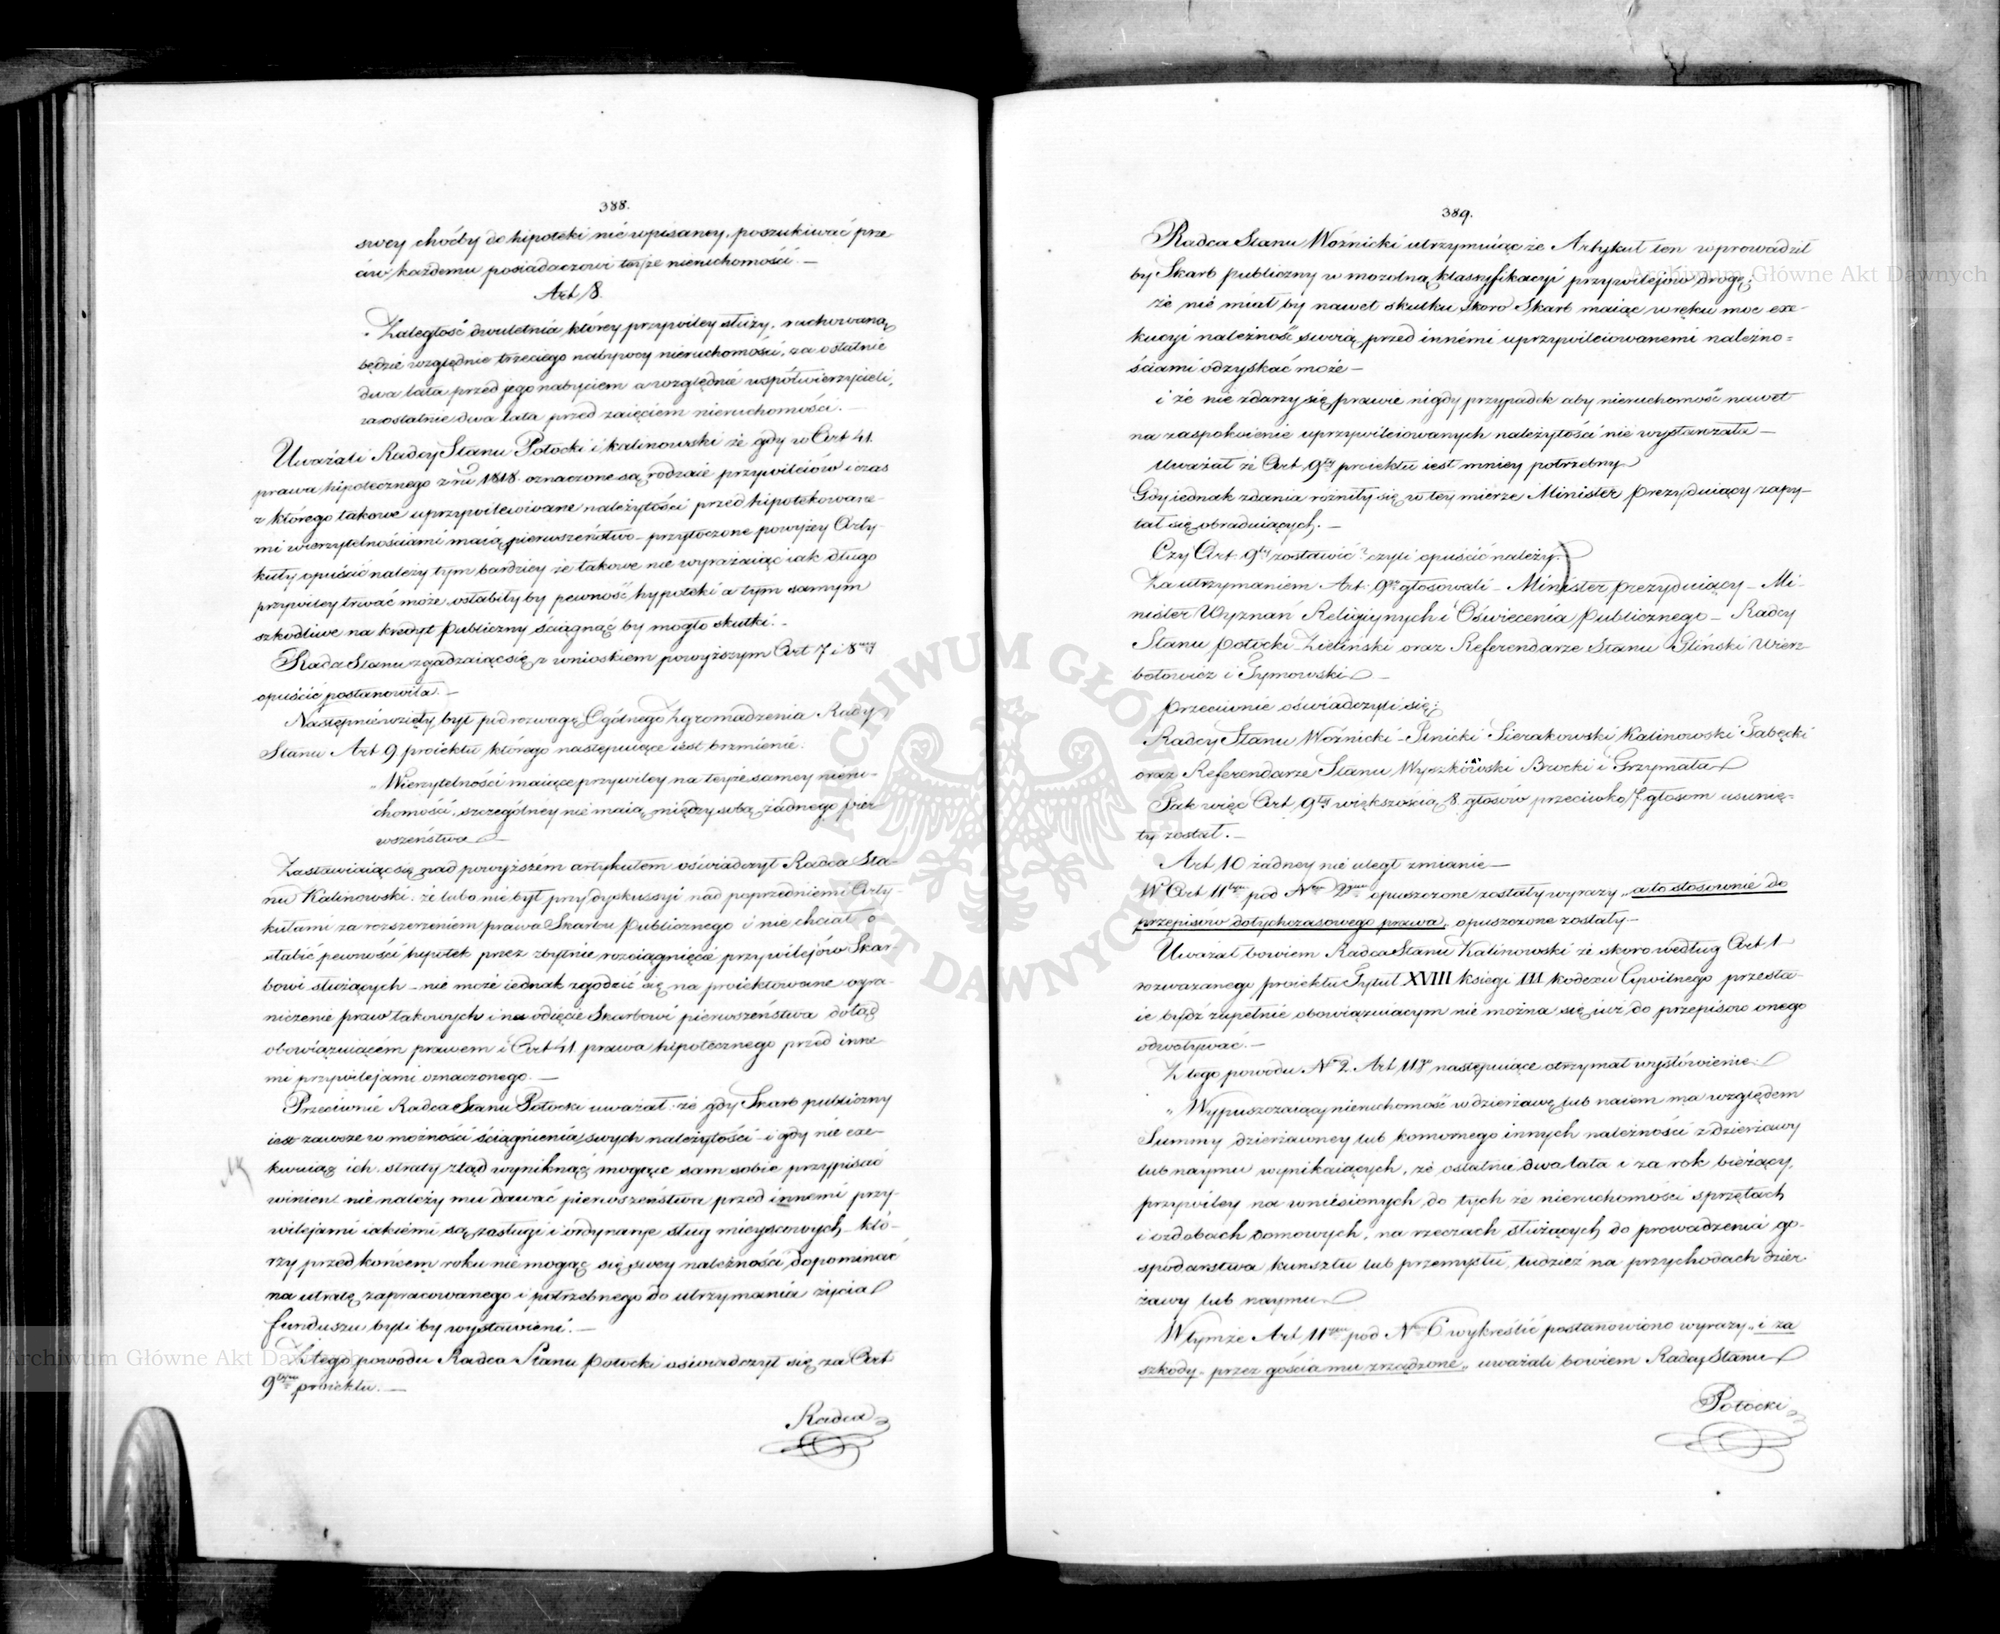 388.
swey choćby do hipoteki nie wpisaney, poszukiwać prze
ciw każdemu posiadaczowi teyże nieruchomości. —
Art 8.
„Zaległość dwuletnia którey przywiley służy, rachowaną
będzie względnie trzeciego nabywcy nieruchomości, za ostatnie
dwa lata przed jego nabyciem a względnie współwierzycieli,
za ostatnie dwa lata przed zaięciem nieruchomości. —
Uważali Radcy Stanu Potocki i Kalinowski że gdy w Art 41.
prawa hipotecznego z ru 1818. oznaczone są rodzaie przywileiów i czas
z którego takowe uprzywileiowane należytości przed hipotekowane-
mi wierzytelnościami maią pierwszeństwo – przytoczone powyżey Arty-
kuły opuścić należy tym bardziey że takowe nie wyrażaiąc iak długo
przywiley trwać może osłabiły by pewność hypoteki a tym samym
szkodliwe na kredyt publiczny ściągnąć by mogło skutki. –
Rada Stanu zgadzaiąc się z wnioskiem powyższym Art 7 i 8my
opuścić postanowiła. —
Następnie wzięty był pod rozwagę Ogólnego Zgromadzenia Rady
Stanu Art 9 proiektu którego następuiące iest brzmienie:
„Wierzytelności maiące przywiley na teyże samey nieru-
chomości, szczególney nie maią między sobą żadnego pier
wszeństwa —
Zastawiaiąc się nad powyższém artykułem oświadczył Radca Sta-
nu Kalinowski: że lubo nie był przy dyskussyi nad poprzedniemi Arty-
kułami za rozszerzeniem prawa Skarbu Publicznego i nie chciał o-
słabić pewności hypotek przez zbytnie rozciągnięcie przywilejów Skar-
bowi służących – nie może iednak zgodzić się na proiektowane ogra-
niczenie praw takowych i na odięcie Skarbowi pierwszeństwa dotąd
obowiązuiącém prawem i Art 41. prawa hipotecznego przed inne-
mi przywilejami oznaczonego. —
Przeciwnie Radca Stanu Potocki uważał: że gdy Skarb publiczny
iest zawsze w możności ściągnienia swych należytości – i gdy nie exe-
kwuiąc ich straty ztąd wyniknąć mogące sam sobie przypisać
winien nie należy mu dawać pierwszeństwa przed innemi przy-
wilejami iakiemi są zasługi i ordynarye sług mieyscowych – któ-
rzy przed końcem roku nie mogąc się swey należności dopominać
na utratę zapracowanego i potrzebnego do utrzymania życia
funduszu byli by wystawieni. —
Z tego powodu Radca Stanu Potocki oświadczył się za Art
9tym proiektu. —
Radca
389.
Radca Stanu Woźnicki utrzymuiąc że Artykuł ten wprowadził
by Skarb publiczny w mozolną klassyfikacyi przywilejów drogę;
że nie miał by nawet skutku skoro Skarb maiąc w ręku moc exe-
kucyi należność swoią przed innémi uprzywileiowanemi należno-
ściami odzyskać może —
i że nie zdarzy się prawie nigdy przypadek aby nieruchomość nawet
na zaspokoienie uprzywileiowanych należytości nie wystarczała —
uważał że Art 9ty proiektu iest mniey potrzebny
Gdy iednak zdania różniły się w tey mierze Minister Prezyduiący zapy-
tał się obraduiących. —
Czy Art 9ty zostawić? czyli opuścić należy?
Za utrzymaniem Art: 9go głosowali – Minister prezyduiący – Mi-
nister Wyznań Religiynych i Oświecenia Publicznego – Radcy
Stanu Potocki – Zieliński oraz Referendarze Stanu Gliński Wierz
bołowicz i Tymowski —
Przeciwnie oświadczyli się:
Radcy Stanu Woźnicki – Linicki Sierakowski Kalinowski Łabęcki
oraz Referendarze Stanu Wyszkowski Brocki i Grzymała
Tak więc Art 9ty większością 8. głosów przeciwko 7. głosom usunię-
ty został. —
Art 10 żadney nie uległ zmianie —
W Art 11tym pod Nem 2gim opuszczone zostały wyrazy „a to stosownie do
przepisów dotychczasowego prawa, opuszczone zostały —
Uważał bowiem Radca Stanu Kalinowski że skoro według Art 1
rozważanego proiektu Tytuł XVIII księgi III kodexu Cywilnego przesta-
ie bydź zupełnie obowiązuiącym nie można się iuż do przepisów onego
odwoływać. —
Z tego powodu Nr 2 Art 11go następuiące otrzymał wysłowienie:
„Wypuszczaiący nieruchomość w dzierżawę lub naiem ma względem
Summy dzierżawney lub komornego innych należności z dzierżawy
lub naymu wynikaiących, że ostatnie dwa lata i za rok bieżący,
przywiley na wniesionych do tych że nieruchomości sprzętach
i ozdobach domowych, na rzeczach służących do prowadzenia go-
spodarstwa, kunsztu lub przemysłu, tudzież na przychodach dzier
żawy lub naymu.
W tymże Art 11tym pod Nem 6 wykreślić postanowiono wyrazy „i za
szkody – przez gościa mu zrządzone„ uważali bowiem Radcy Stanu
Potocki
Archiwum Główne Akt Dawnych
Archiwum Główne Akt Dawnych
ARCHIWUM GŁÓWNE AKT DAWNYCH